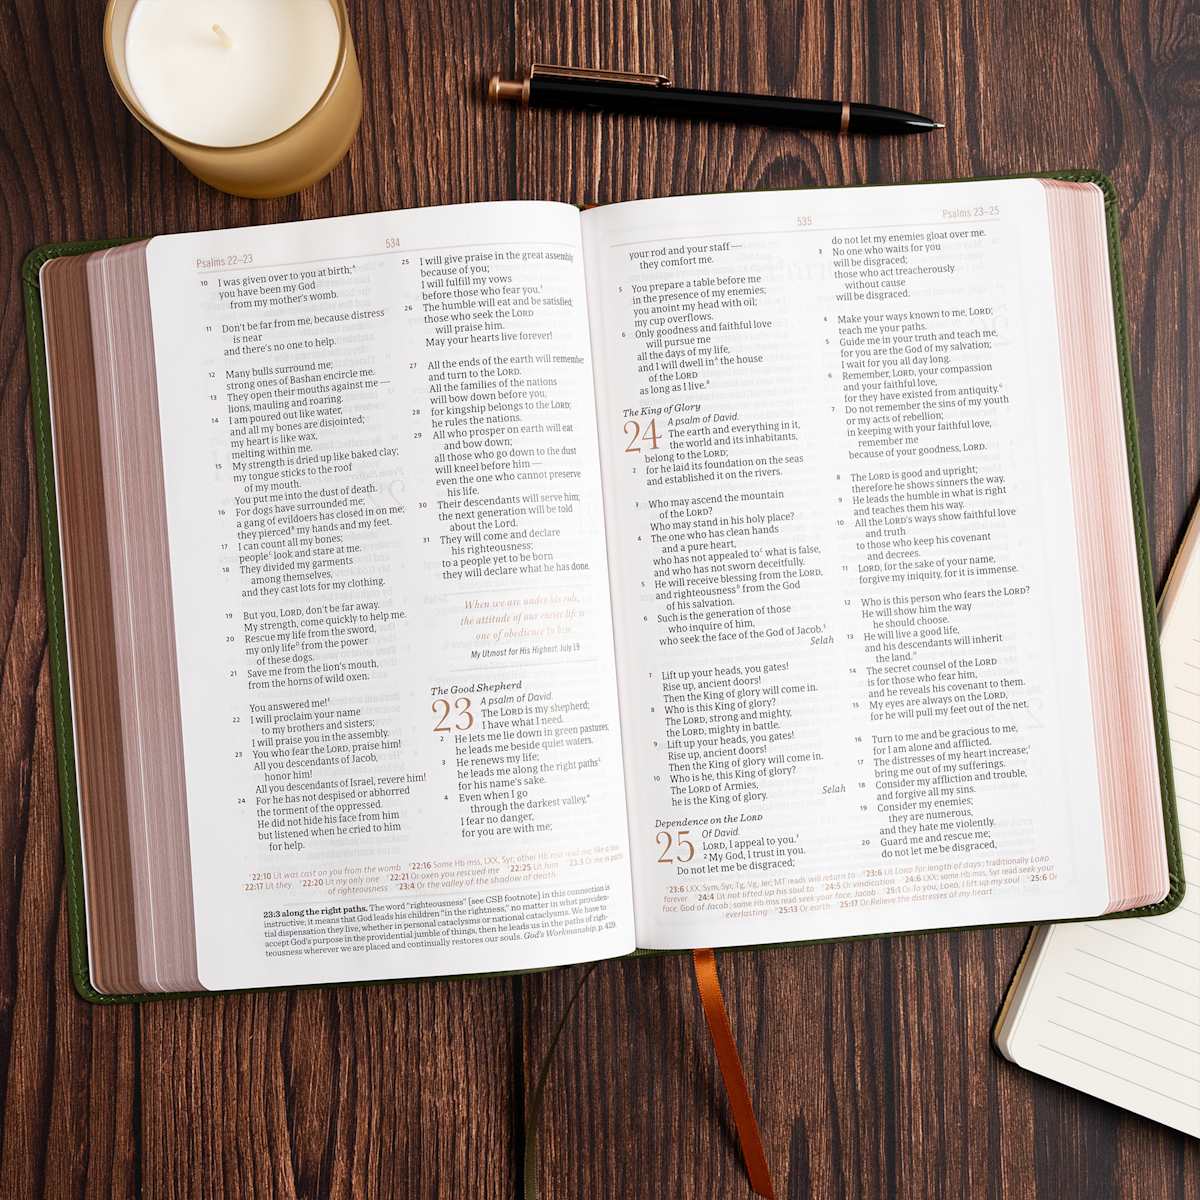 534
Psalms 22–23
10 I was given over to you at birth;A
you have been my God
from my mother's womb.
11 Don't be far from me, because distress
is near
and there's no one to help.
12 Many bulls surround me;
strong ones of Bashan encircle me.
13 They open their mouths against me —
lions, mauling and roaring.
14 I am poured out like water,
and all my bones are disjointed;
my heart is like wax,
melting within me.
15 My strength is dried up like baked clay;
my tongue sticks to the roof
of my mouth.
You put me into the dust of death.
16 For dogs have surrounded me;
a gang of evildoers has closed in on me;
they piercedB my hands and my feet.
17 I can count all my bones;
peopleC look and stare at me.
18 They divided my garments
among themselves,
and they cast lots for my clothing.
19 But you, LORD, don't be far away.
My strength, come quickly to help me.
20 Rescue my life from the sword,
my only lifeD from the power
of these dogs.
21 Save me from the lion's mouth,
from the horns of wild oxen.
You answered me!E
22 I will proclaim your name
to my brothers and sisters;
I will praise you in the assembly.
23 You who fear the LORD, praise him!
All you descendants of Jacob,
honor him!
All you descendants of Israel, revere him!
24 For he has not despised or abhorred
the torment of the oppressed.
He did not hide his face from him
but listened when he cried to him
for help.
25 I will give praise in the great assembly
because of you;
I will fulfill my vows
before those who fear you.F
26 The humble will eat and be satisfied;
those who seek the LORD
will praise him.
May your hearts live forever!
27 All the ends of the earth will remember
and turn to the LORD.
All the families of the nations
will bow down before you,
28 for kingship belongs to the LORD;
he rules the nations.
29 All who prosper on earth will eat
and bow down;
all those who go down to the dust
will kneel before him —
even the one who cannot preserve
his life.
30 Their descendants will serve him;
the next generation will be told
about the Lord.
31 They will come and declare
his righteousness;
to a people yet to be born
they will declare what he has done.
When we are under his rule,
the attitude of our entire life is
one of obedience to him.
My Utmost for His Highest, July 19
The Good Shepherd
23 A psalm of David.
The LORD is my shepherd;
I have what I need.
2 He lets me lie down in green pastures;
he leads me beside quiet waters.
3 He renews my life;
he leads me along the right pathsG
for his name's sake.
4 Even when I go
through the darkest valley,H
I fear no danger,
for you are with me;
A22:10 Lit was cast on you from the womb B22:16 Some Hb mss, LXX, Syr; other Hb mss read me; like a lion
C22:17 Lit they D22:20 Lit my only one E22:21 Or oxen you rescued me F22:25 Lit him G23:3 Or me in paths
of righteousness H23:4 Or the valley of the shadow of death
23:3 along the right paths. The word "righteousness" [see CSB footnote] in this connection is
instructive; it means that God leads his children "in the rightness," no matter in what providen-
tial dispensation they live, whether in personal cataclysms or national cataclysms. We have to
accept God's purpose in the providential jumble of things, then he leads us in the paths of righ-
teousness wherever we are placed and continually restores our souls. God's Workmanship, p. 429.
535
Psalms 23–25
your rod and your staff —
they comfort me.
5 You prepare a table before me
in the presence of my enemies;
you anoint my head with oil;
my cup overflows.
6 Only goodness and faithful love
will pursue me
all the days of my life,
and I will dwell inA the house
of the LORD
as long as I live.B
The King of Glory
24 A psalm of David.
The earth and everything in it,
the world and its inhabitants,
belong to the LORD;
2 for he laid its foundation on the seas
and established it on the rivers.
3 Who may ascend the mountain
of the LORD?
Who may stand in his holy place?
4 The one who has clean hands
and a pure heart,
who has not appealed toC what is false,
and who has not sworn deceitfully.
5 He will receive blessing from the LORD,
and righteousnessD from the God
of his salvation.
6 Such is the generation of those
who inquire of him,
who seek the face of the God of Jacob.E
Selah
7 Lift up your heads, you gates!
Rise up, ancient doors!
Then the King of glory will come in.
8 Who is this King of glory?
The LORD, strong and mighty,
the LORD, mighty in battle.
9 Lift up your heads, you gates!
Rise up, ancient doors!
Then the King of glory will come in.
10 Who is he, this King of glory?
The LORD of Armies,
he is the King of glory.
Selah
Dependence on the LORD
25 Of David.
LORD, I appeal to you.F
2 My God, I trust in you.
Do not let me be disgraced;
do not let my enemies gloat over me.
3 No one who waits for you
will be disgraced;
those who act treacherously
without cause
will be disgraced.
4 Make your ways known to me, LORD;
teach me your paths.
5 Guide me in your truth and teach me,
for you are the God of my salvation;
I wait for you all day long.
6 Remember, LORD, your compassion
and your faithful love,
for they have existed from antiquity.G
7 Do not remember the sins of my youth
or my acts of rebellion;
in keeping with your faithful love,
remember me
because of your goodness, LORD.
8 The LORD is good and upright;
therefore he shows sinners the way.
9 He leads the humble in what is right
and teaches them his way.
10 All the LORD's ways show faithful love
and truth
to those who keep his covenant
and decrees.
11 LORD, for the sake of your name,
forgive my iniquity, for it is immense.
12 Who is this person who fears the LORD?
He will show him the way
he should choose.
13 He will live a good life,
and his descendants will inherit
the land.H
14 The secret counsel of the LORD
is for those who fear him,
and he reveals his covenant to them.
15 My eyes are always on the LORD,
for he will pull my feet out of the net.
16 Turn to me and be gracious to me,
for I am alone and afflicted.
17 The distresses of my heart increase;I
bring me out of my sufferings.
18 Consider my affliction and trouble,
and forgive all my sins.
19 Consider my enemies;
they are numerous,
and they hate me violently.
20 Guard me and rescue me;
do not let me be disgraced,
A23:6 LXX, Sym, Syr, Tg, Vg, Jer; MT reads will return to B23:6 Lit LORD for length of days; traditionally LORD
forever C24:4 Lit not lifted up his soul to D24:5 Or vindication E24:6 LXX; some Hb mss, Syr read seek your
face, God of Jacob; some Hb mss read seek your face, Jacob F25:1 Or To you, LORD, I lift up my soul G25:6 Or
everlasting H25:13 Or earth I25:17 Or Relieve the distresses of my heart